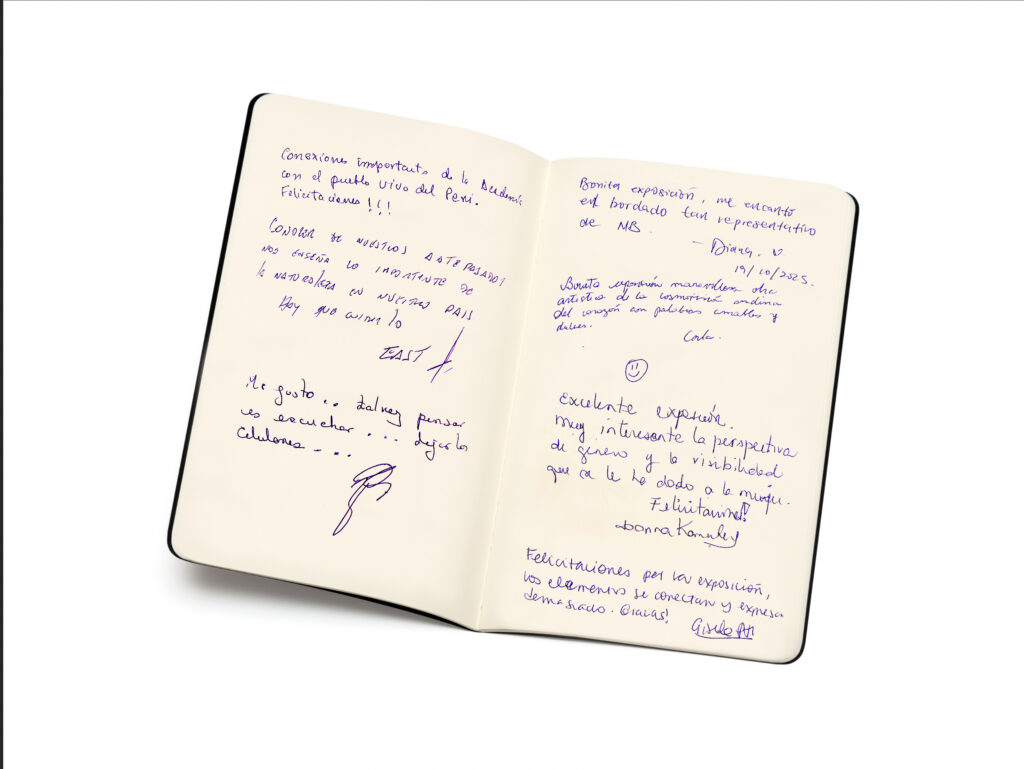 Conexiones importants de la Academia
con el pueblo vivo del Perú.
Felicitaciones !!!
CONOCER DE NUESTROS ANTEPASADOS
NOS ENSEÑA LO IMPORTANTE DE
LA NATURALEZA EN NUESTRO PAIS
HAY QUE CUIDARLO
EAST
Me gusto .. talvez pensar
es escuchar ... dejar los
Celulares ...
Bonita exposición, me encantó
el bordado tan representativo
de MB.
- Diana. V
19/10/2025.
Bonita exposición maravillosa obra
artistica de la cosmovisión andina
del corazón con palabras amables y
dulces.
Excelente exposición.
Muy interesante la perspectiva
de género y la visibilidad
que se le ha dado a la mujer.
Felicitaciones!
Felicitaciones por la exposición,
los elementos se conectan y expresa
demasiado. Gracias!
Gisela